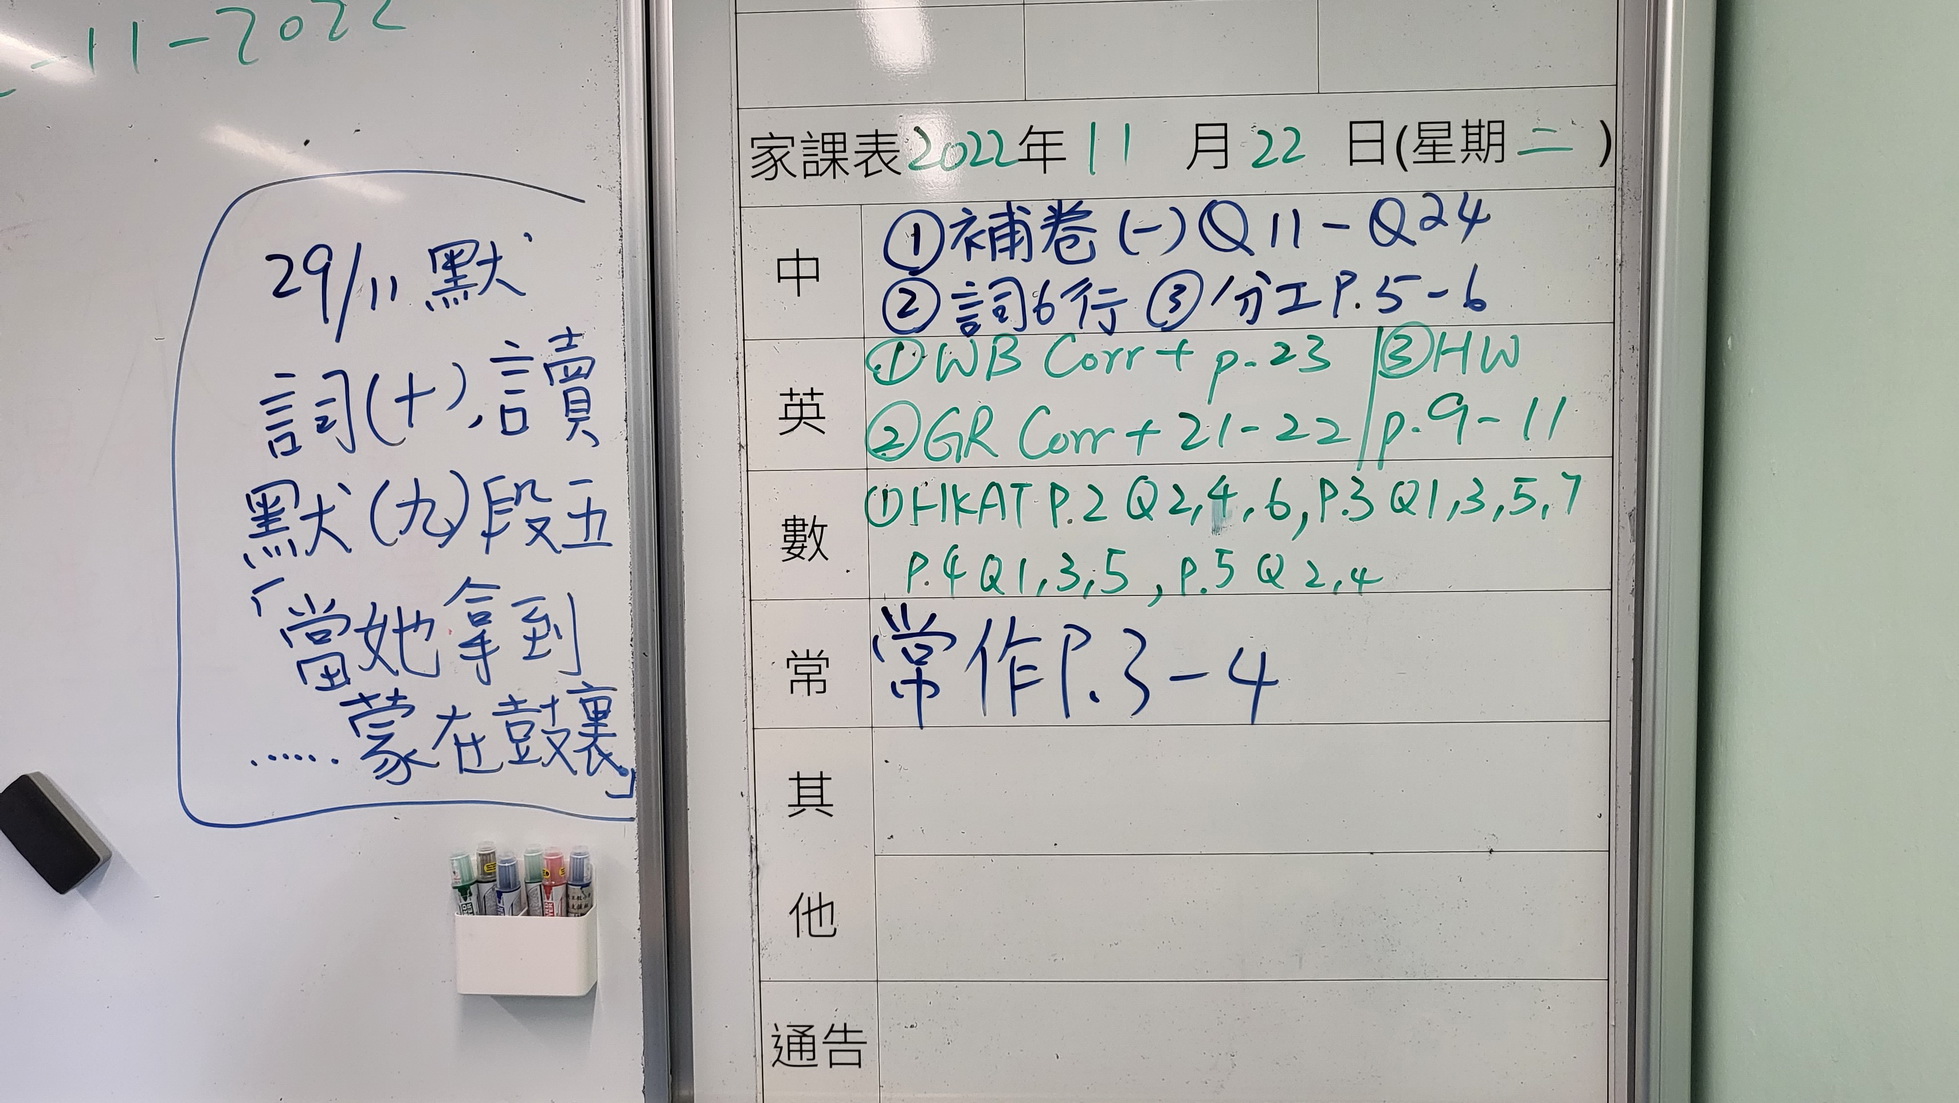 -11-2022
29/11 默
詞(十),讀
默(九)段五
「當她拿到
……蒙在鼓裏」
家課表2022年11月22日(星期二)
中
①補卷(一)Q11-Q24
②詞6行 ③分工P.5-6
英
①WB Corr + p.23
②GR Corr + 21-22
③HW
p.9-11
數
①HKAT P.2 Q2,4,6,P.3 Q1,3,5,7
P.4 Q1,3,5,P.5 Q2,4
常
常作P.3-4
其
他
通告